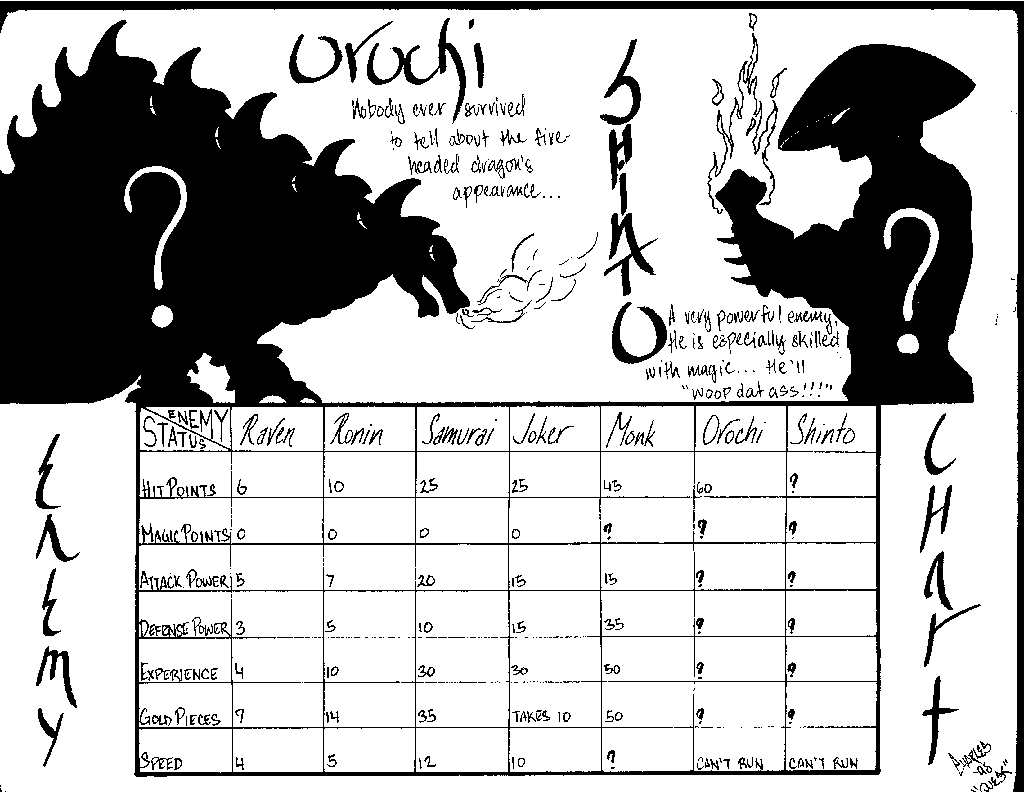 Orochi
Nobody ever survived
to tell about the five-
headed dragon's
appearance...
?
SHINTO
A very powerful enemy.
He is especially skilled
with magic... He'll
"woop dat ass!!!"
?
ENEMY
CHART
ENEMY STATUS Raven Ronin Samurai Joker Monk Orochi Shinto
HIT POINTS 6 10 25 25 45 60 ?
MAGIC POINTS 0 0 0 0 ? ? ?
ATTACK POWER 5 7 20 15 15 ? ?
DEFENSE POWER 3 5 10 15 35 ? ?
EXPERIENCE 4 10 30 30 50 ? ?
GOLD PIECES 7 14 35 TAKES 10 50 ? ?
SPEED 4 5 12 10 ? CAN'T RUN CAN'T RUN